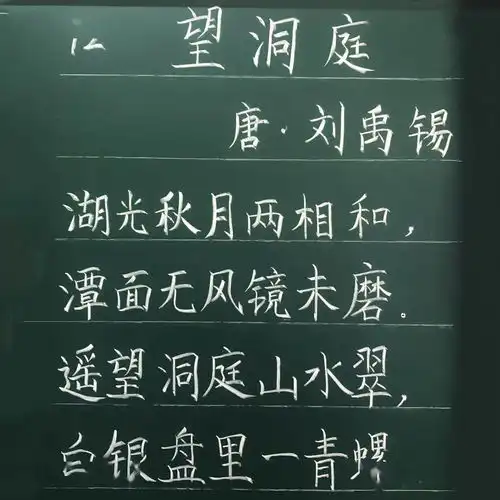 12 望洞庭
唐·刘禹锡
湖光秋月两相和，
潭面无风镜未磨。
遥望洞庭山水翠，
白银盘里一青螺